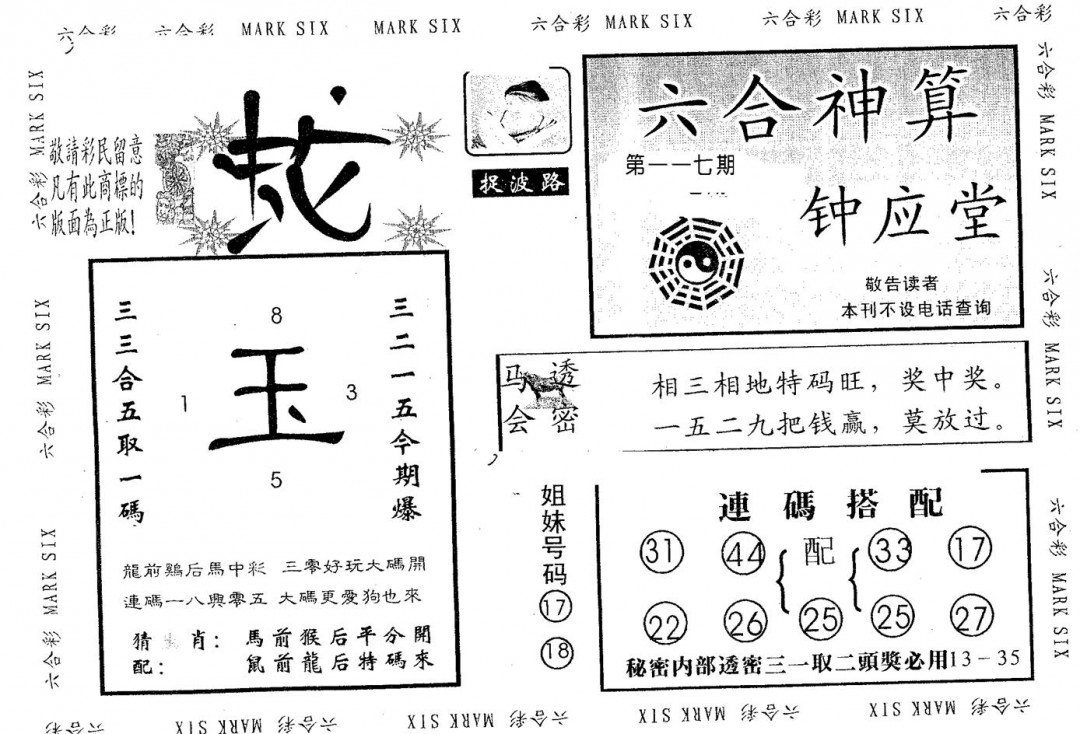 六合彩 六合彩 MARK SIX MARK SIX 六合彩 MARK SIX 六合彩 MARK SIX 六合彩
六合彩 MARK SIX
敬請彩民留意
凡有此商標的
版面為正版!
蛇
捉波路
六合神算
第一一七期
钟应堂
敬告读者
本刊不设电话查询
六合彩 MARK SIX
六合彩 MARK SIX
六合彩 MARK SIX
三三合五取一碼
8
1
玉
3
5
三二一五今期爆
龍前鷄后馬中彩 三零好玩大碼開
連碼一八興零五 大碼更愛狗也來
猜生肖: 馬前猴后平分開
配: 鼠前龍后特碼來
马会
透密
相三相地特码旺，奖中奖。
一五二九把钱赢，莫放过。
姐妹号码
17
18
連碼搭配
31 44 配 33 17
22 26 25 25 27
秘密内部透密三一取二頭獎必用13-35
六合彩 MARK SIX
六合彩 MARK SIX
六合彩 MARK SIX 六合彩 MARK SIX 六合彩 MARK SIX 六合彩